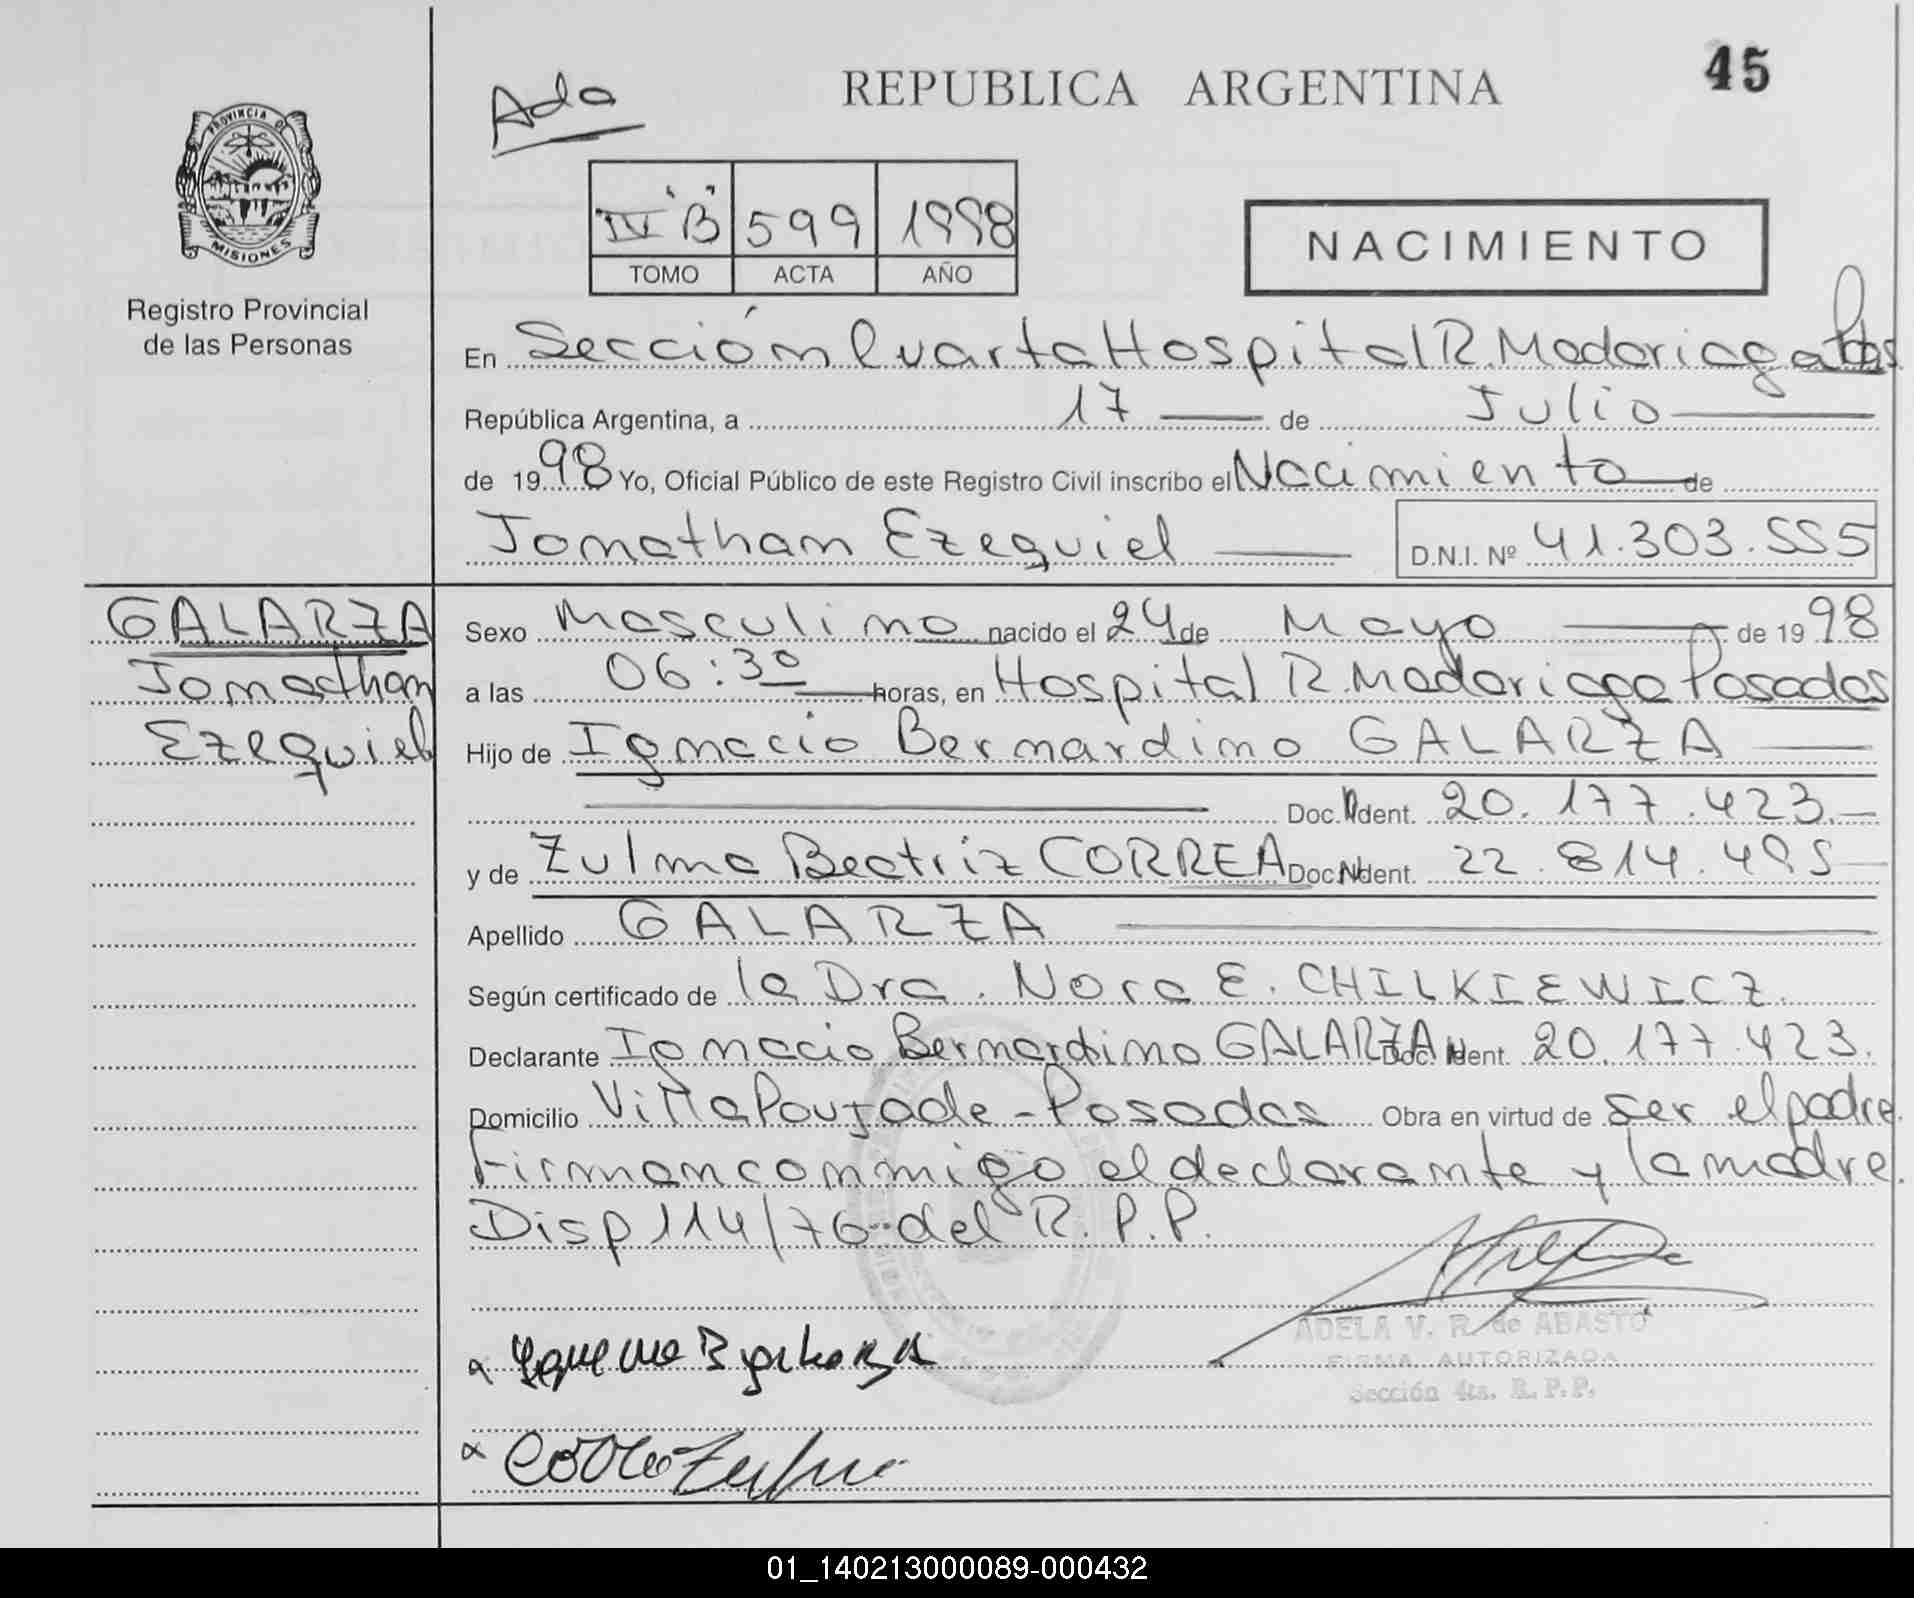 45
Ada
REPUBLICA ARGENTINA
PROVINCIA DE
MISIONES
Registro Provincial
de las Personas
IV "B" 599 1998
TOMO ACTA AÑO
NACIMIENTO
En Sección Cuarta Hospital R. Madariaga Pdas.
República Argentina, a 17 de Julio
de 1998 Yo, Oficial Público de este Registro Civil inscribo el Nacimiento de
Jonathan Ezequiel D.N.I. Nº 41.303.555
GALARZA
Jonathan
Ezequiel
Sexo Masculino nacido el 24 de Mayo de 1998
a las 06:30 horas, en Hospital R. Madariaga Posadas
Hijo de Ignacio Bernardino GALARZA
Doc. Ident. 20.177.423.-
y de Zulma Beatriz CORREA Doc. Ident. 22.814.495
Apellido GALARZA
Según certificado de la Dra. Nora E. CHILKIEWICZ.
Declarante Ignacio Bernardino GALARZA Doc. Ident. 20.177.423.
Domicilio Villa Poujade - Posadas Obra en virtud de ser el padre.
Firman conmigo el declarante y la madre.
Disp 114/76 del R.P.P.
ADELA V. R. de ABASTO
FIRMA AUTORIZADA
Sección 4ta. R. P. P.
Correa Zulma
01_140213000089-000432